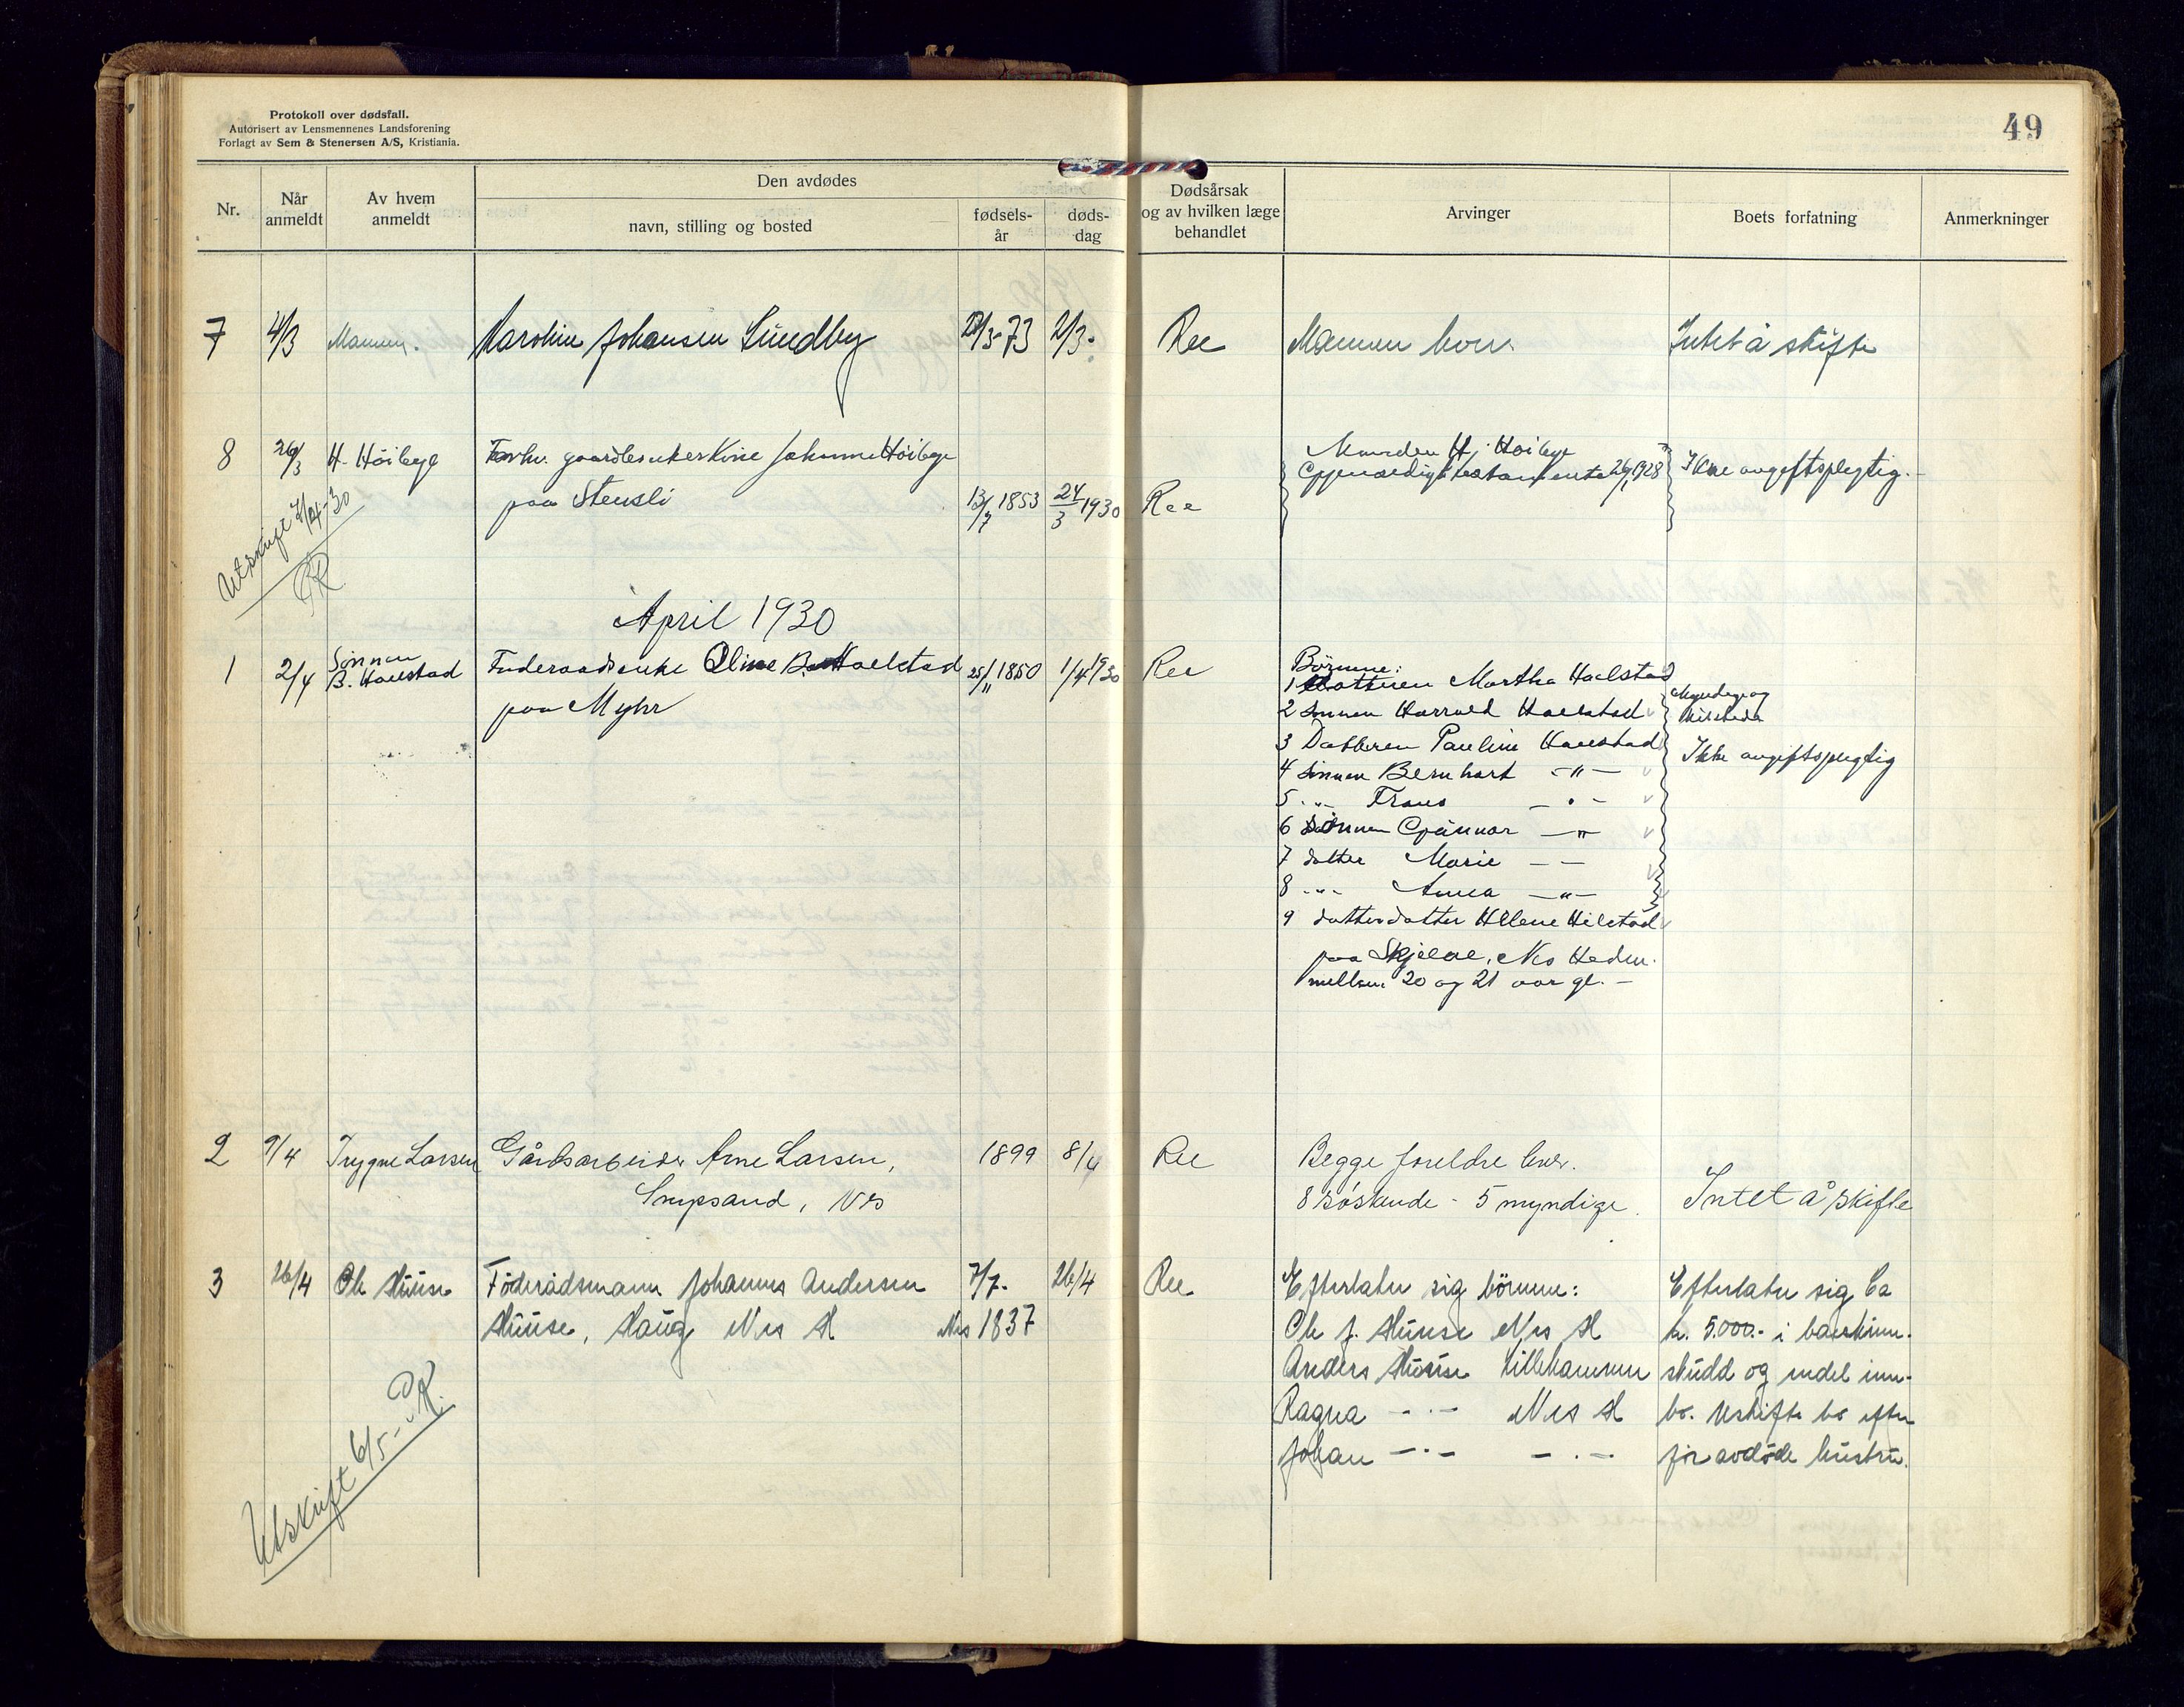 Protokoll over dødsfall.
Autorisert av Lensmennenes Landsforening
Forlagt av Sem & Stenersen A/S, Kristiania.
49
Nr.
Når anmeldt
Av hvem anmeldt
Den avdødes
navn, stilling og bosted
fødsels-år
døds-dag
Dødsårsak og av hvilken læge behandlet
Arvinger
Boets forfatning
Anmerkninger
7 4/3 Mannen. Karoline Johansen Sundby /3-73 2/3- Ree Mannen Intet å skifte
8 26/3 H. Høibye Johanne Høibye Manden H. Høibye Ikke avgiftspligtig.-
paa Stensli 13/7 1853 24/3 1930 Ree Gjensidigt testamente 1928
Utskrift 4/4-30
PR
April 1930
1 2/4 Sønnen Føderaadsenke Oline Haelstad 25/11 1850 1/4 1930 Ree Børnene:
B. Haelstad paa Myhr 1 Datteren Martha Haelstad Myndige og
2 Sønnen Harrald Haelstad
3 Datteren Pauline Haelstad Ikke avgiftspligtig
4 Sønnen Bernhart -"-
5 -"- Frans -"-
6 Sønnen Gunnar -"-
7 datter Marie - -
8 -"- Anna -"-
9 datterdatter Helene Hilstad
paa Skjelve, Nes Hedm.
mellem 20 og 21 aar gl. -
2 9/4 Trygve Larsen Gårdsarbeider Arne Larsen, 1899 8/4 Ree Begge foreldre lever.
Smepsand, Nes 8 søskende - 5 myndige. Intet å skifte
3 26/4 Ole Huuse Föderådsmann Johannes Andersen 7/7- 26/4 Ree Efterlater sig börnene: Efterlater sig Ca
Huuse, Haug Nes H Nes 1837 Ole J. Huuse Nes H kr. 5.000.- i bankinn-
Anders Huuse Lillehammer skudd og endel inn-
Ragna -"- Nes H bo. Uskifte bo efter
Johan -"- -"- før avdøde hustru.
Utskrift 6/5- PR.